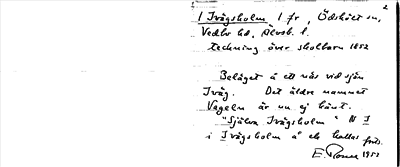 2
1 Ivägsholm 1 fr, Ödskölt sn,
Vedbo hd, Älvsb. l.
teckning över skolbarn 1852
Beläget å ett näs vid sjön
Iväg. Det äldre namnet
Vageln är nu ej känt.
"Själva Ivägsholm" N I
i Ivägsholm å ek kallas förd.
E. 1952